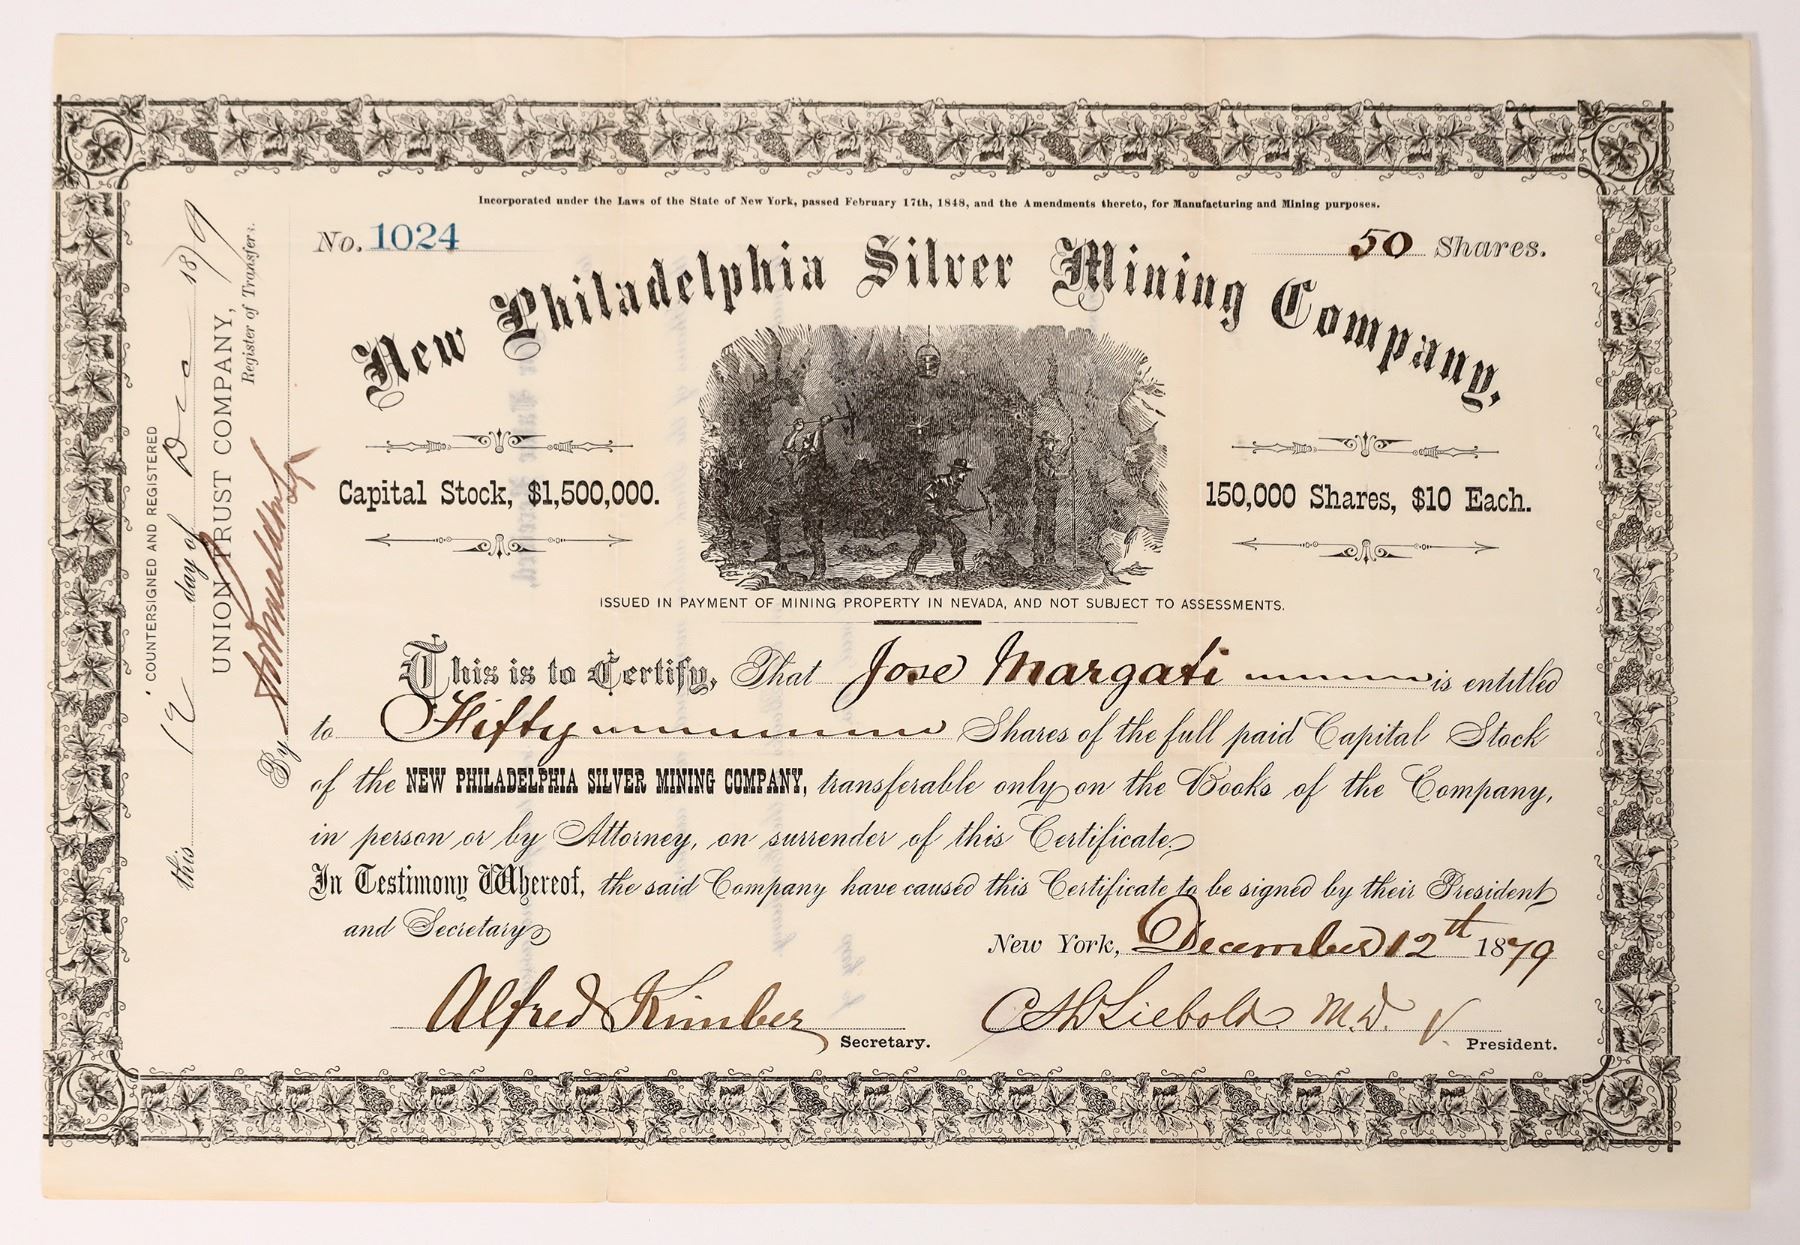 Incorporated under the Laws of the State of New York, passed February 17th, 1848, and the Amendments thereto, for Manufacturing and Mining purposes.
No. 1024
50 Shares.
New Philadelphia Silver Mining Company.
Capital Stock, $1,500,000.
150,000 Shares, $10 Each.
ISSUED IN PAYMENT OF MINING PROPERTY IN NEVADA, AND NOT SUBJECT TO ASSESSMENTS.
This is to Certify, That Jose Margati is entitled
to Fifty Shares of the full paid Capital Stock
of the NEW PHILADELPHIA SILVER MINING COMPANY, transferable only on the Books of the Company,
in person or by Attorney, on surrender of this Certificate
In Testimony Whereof, the said Company have caused this Certificate to be signed by their President
and Secretary
New York, December 12th 1879
Alfred Kimber
Secretary.
C H Liebold M.D. V.
President.
COUNTERSIGNED AND REGISTERED
this 12 day of Dec 1879
UNION TRUST COMPANY,
Register of Transfers.
By